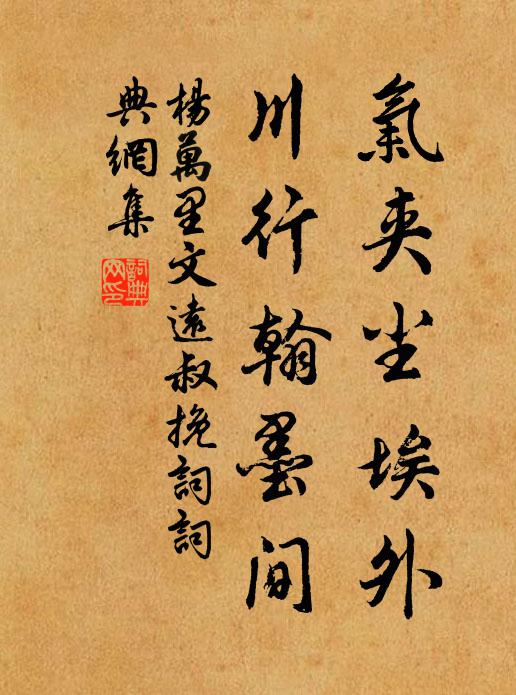 氣爽尘埃外
川行翰墨間
楊萬里文遠叔挽詞詞
典網集
詞典
网印